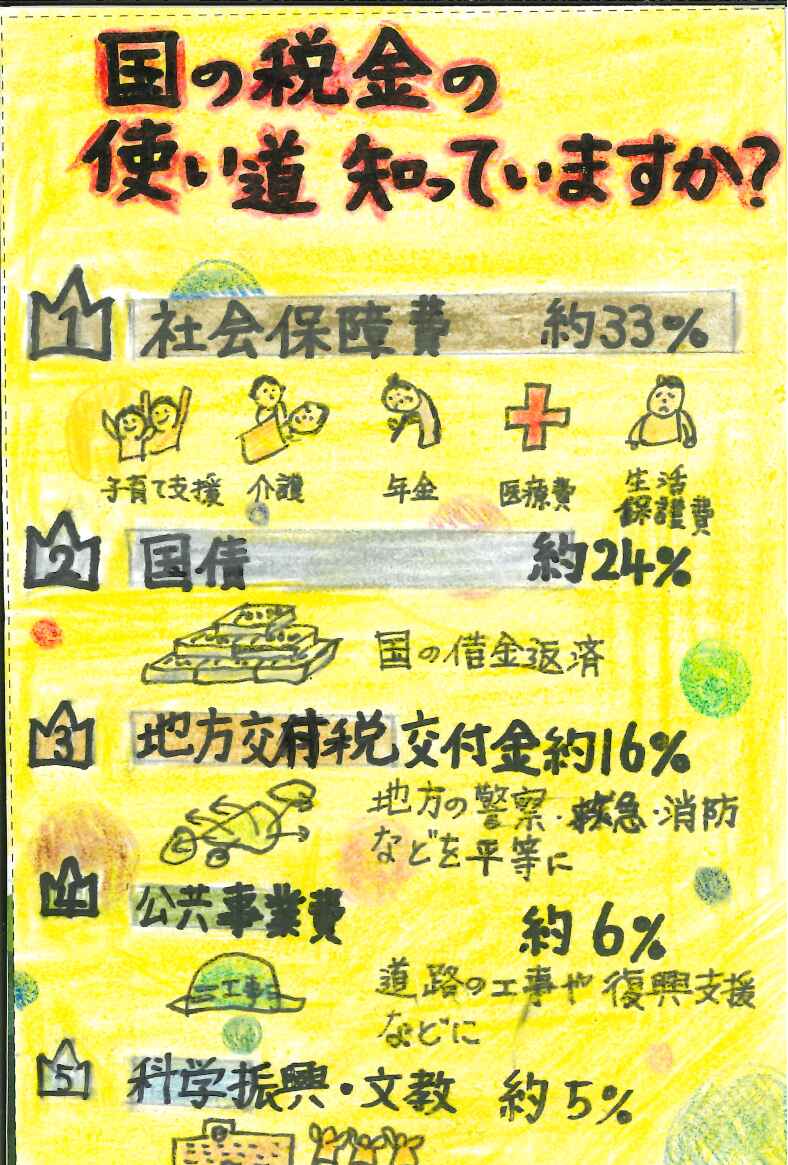 国の税金の
使い道 知っていますか?
1 社会保障費 約33%
子育て支援 介護 年金 医療費 生活保護費
2 国債 約24%
国の借金返済
3 地方交付税交付金約16%
地方の警察・救急・消防
などを平等に
4 公共事業費 約6%
工事
道路の工事や復興支援
などに
5 科学振興・文教 約5%